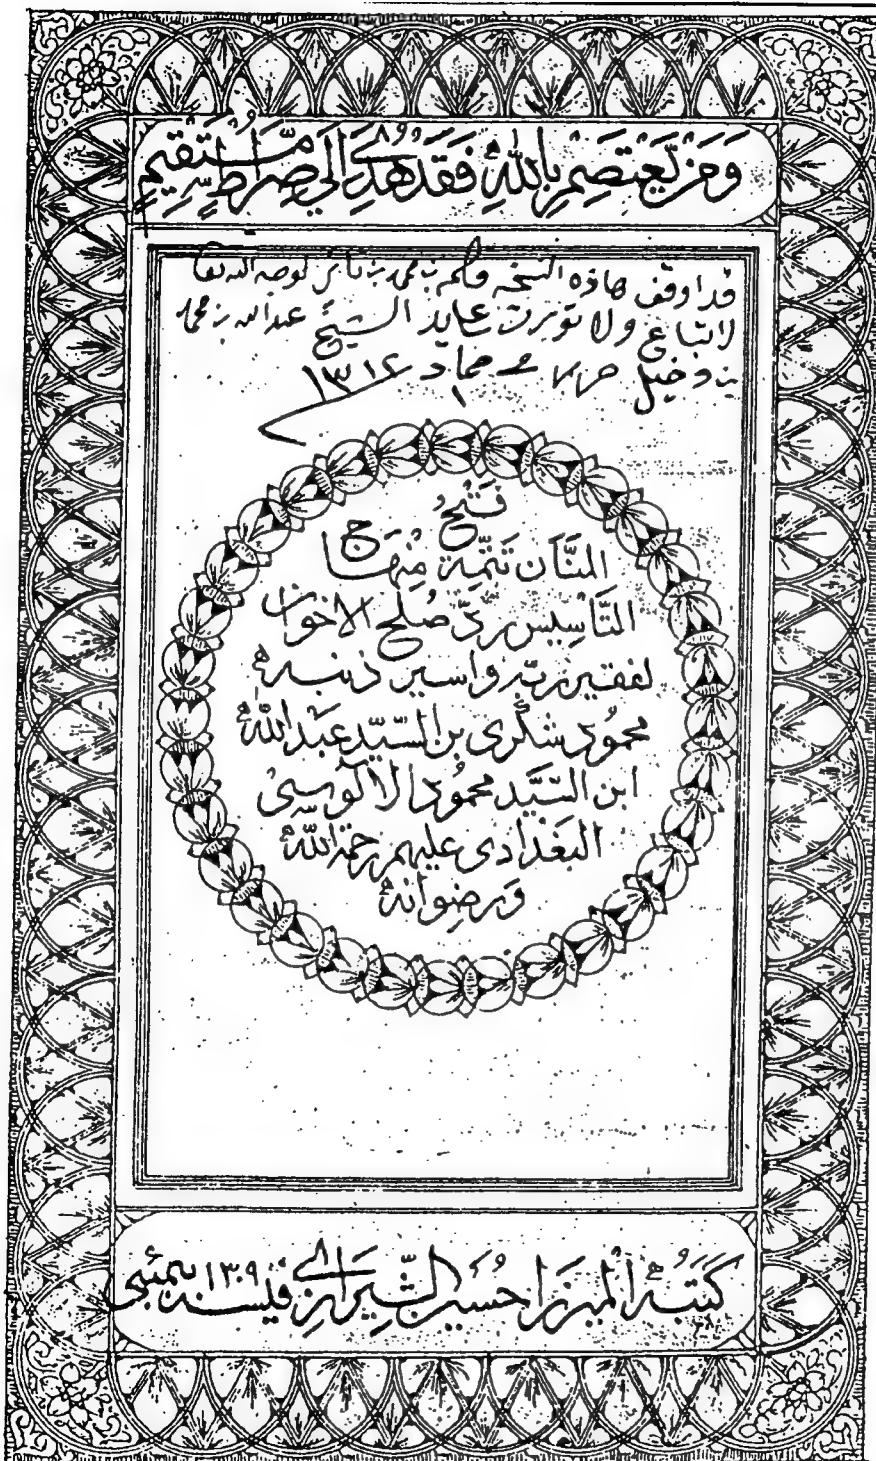 وَمَن يَعتَصِم بِاللهِ فَقَد هُدِيَ اِلَي صِرَاطٍ مُستَقِيمٍ
قد اوقف هاذه النسخه بن محمد بن لوجه الله تعا
لاتباع ولا تورث الشيخ عبدالله بن محمد
بن دخيل ١٣١٢
فَتْحُ
المنَّان تَتِمَّة مِنهَاج
التَّاسِيس رد صُلح الاخوان
لفقير ربه واسير ذنبه
محمُود شكرى بن السّيّد عَبدالله
ابن السَّيَّد محمُود الالوسى
البَغدادى عليهم رحمة الله
وَرضوانه
كَتَبَهُ المِيرزا حُسين الشِّيرَازِي فِي سنه ١٣٠٩ بمبئى